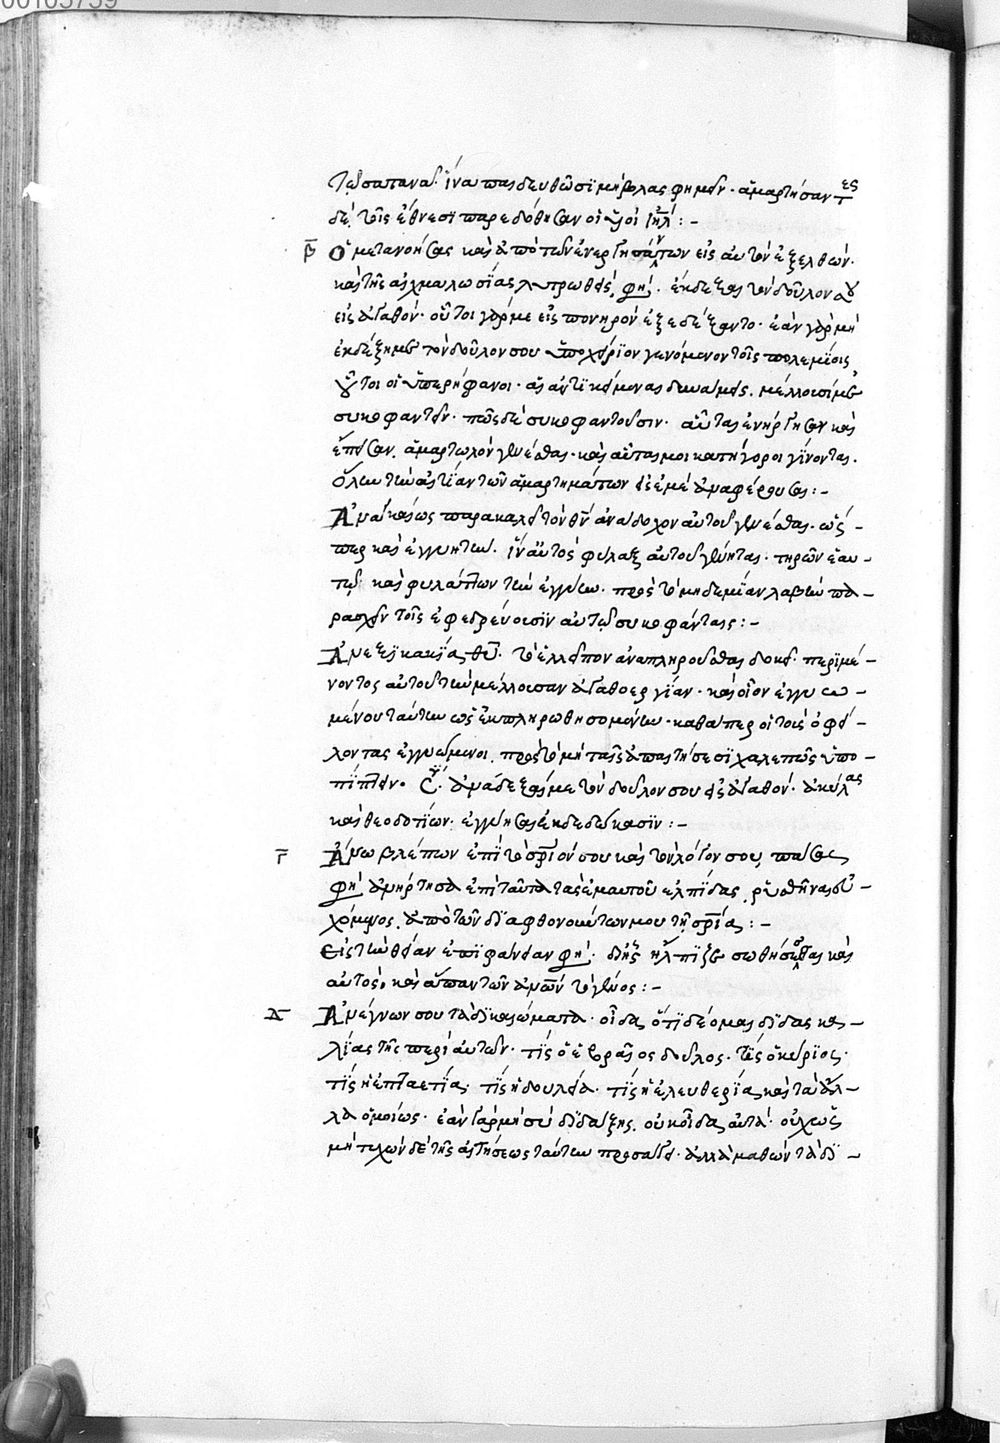 00105759
τῷ σατανᾷ· ἵνα παιδευθῶσϊ μὴ βλασφημεῖν· ἁμαρτήσαντες
δὲ τοῖς ἔθνεσϊ παρεδόθησαν οἱ υἱοὶ ἰηλ:-
β Ὁ μετανοήσας καὶ ἀπὸ τῶν ἐνεργησάντων εἰς αὐτὸν ἐξελθὼν·
καὶ τῆς αἰχμαλωσίας λυτρωθεὶς, φησί· ἔκδεξαι τὸν δοῦλον σου
εἰς ἀγαθόν· οὗτοι γάρ με εἰς πονηρὸν ἐξεδέξαντο· ἐὰν γὰρ μὴ
ἐκδέξῃ με τὸν δοῦλον σου ὑποχείριον γενόμενον τοῖς πολεμίοις
οὗτοι οἱ ὑπερήφανοι· αἱ ἀντικείμεναι δυνάμεις, μέλλουσί με
συκοφαντεῖν· πῶς δὲ συκοφαντοῦσιν· αὗται ἐνήργησαν καὶ
ἔπεισαν, ἁμαρτωλὸν γενέσθαι· καὶ αὗταί μοι κατήγοροι γίνονται·
ὅλην τὴν αἰτίαν τῶν ἁμαρτημάτων εἰς ἐμὲ ἀναφέρουσαι:-
Ἀναγκαίως παρακαλεῖ τὸν θν ἀνάδοχον αὐτοῦ γενέσθαι· ὥσ-
περ καὶ ἐγγυητὴν· ἵν' αὐτὸς φύλαξ αὐτοῦ γένηται· τηρῶν ἑαυ-
τῷ καὶ φυλάττων τὴν ἐγγύην· πρὸς τὸ μηδεμίαν λαβὴν πα-
ρασχεῖν τοῖς ἐφεδρεύουσϊν αὐτῷ συκοφάνταις:-
Ἀνεξϊκακίας θῦ· τὸ ἐλλεῖπον ἀναπληροῦσθαι δοκεῖ· περιμέ-
νοντος αὐτοῦ τὴν μέλλουσαν ἀγαθοεργίαν· καὶ οἷον ἐγγυω-
μένου ταύτην ὡς ἐκπληρωθησομένην· καθάπερ οἱ τοὺς ὀφεί-
λοντας ἐγγυώμενοι, πρὸς τὸ μὴ ταῖς ἀπαιτήσεσϊ χαλεπῶς ὑπο-
πίπτειν· ἀνάδεξαί με τὸν δοῦλον σου εἰς ἀγαθόν· ἀκύλας
καὶ θεοδοτίων· ἐγγύησαι ἐκδεδώκασϊν:-
Γ Ἄνω βλέπων ἐπὶ τὸ σριόν σου καὶ τὸν λόγον σου, πάσας
φησὶ ἀνήρτησα ἐπὶ ταῦτα τὰς ἐμαυτοῦ ἐλπίδας, ῥυσθῆναι εὐ-
χόμενος, ἀπὸ τῶν διαφθονούντων μου τῇ σρίᾳ:-
Εἰς τὴν θείαν ἐπϊφάνειαν φησί· δι' ἧς ἤλπϊζε σωθήσεσθαι καὶ
αὐτὸς, καὶ ἅπαν τῶν ἀνων τὸ γένος:-
Δ Ἀνέγνων σου τὰ δϊκαιώματα· οἶδα, ὅτι δέομαι διδασκα-
λίας τῆς περὶ αὐτῶν· τίς ὁ ἑβραῖος δοῦλος· τίς ὁ κύριος·
τίς ἡ ἑπταετία· τίς ἡ δουλεία· τίς ἡ ἐλευθερία, καὶ τὰ ἄλ-
λα ὁμοίως· ἐὰν γὰρ μὴ σὺ διδάξῃς, οὐκ οἶδα αὐτά· οὐχ ὡς
μὴ τυχὼν δὲ τῆς αἰτήσεως ταύτην προσάγει· ἀλλὰ μαθὼν τὰ δϊ-